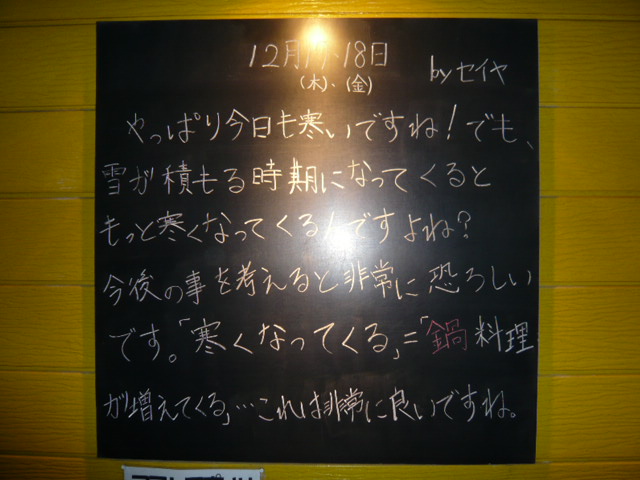 12月17、18日
(木)、(金)
byセイヤ
やっぱり今日も寒いですね!でも、
雪が積もる時期になってくると
もっと寒くなってくるんですよね?
今後の事を考えると非常に恐ろしい
です。「寒くなってくる」=「鍋料理
が増えてくる」…これは非常に良いですね。